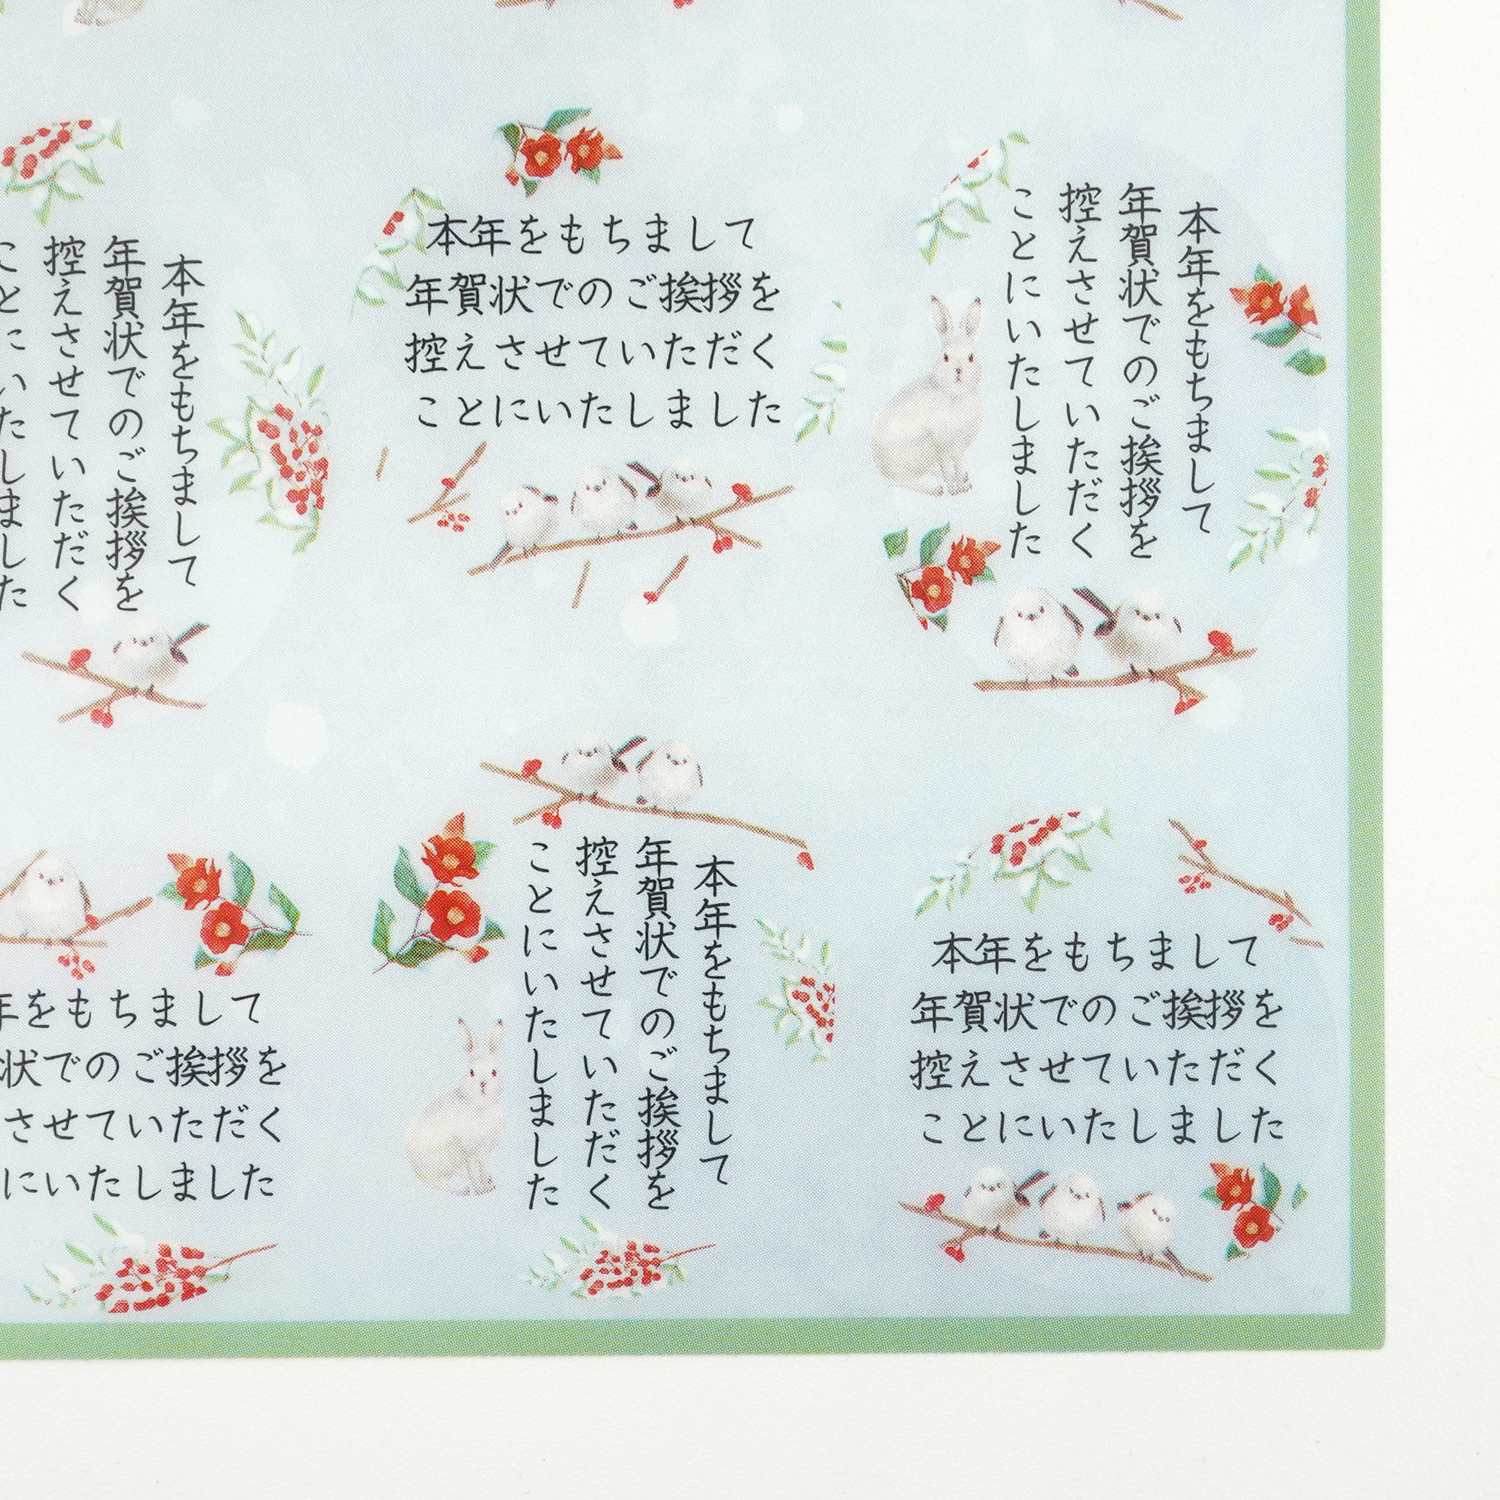 本年をもちまして
年賀状でのご挨拶を
控えさせていただく
ことにいたしました
本年をもちまして
年賀状でのご挨拶を
控えさせていただく
ことにいたしました
本年をもちまして
年賀状でのご挨拶を
控えさせていただく
ことにいたしました
年をもちまして
状でのご挨拶を
させていただく
にいたしました
本年をもちまして
年賀状でのご挨拶を
控えさせていただく
ことにいたしました
本年をもちまして
年賀状でのご挨拶を
控えさせていただく
ことにいたしました